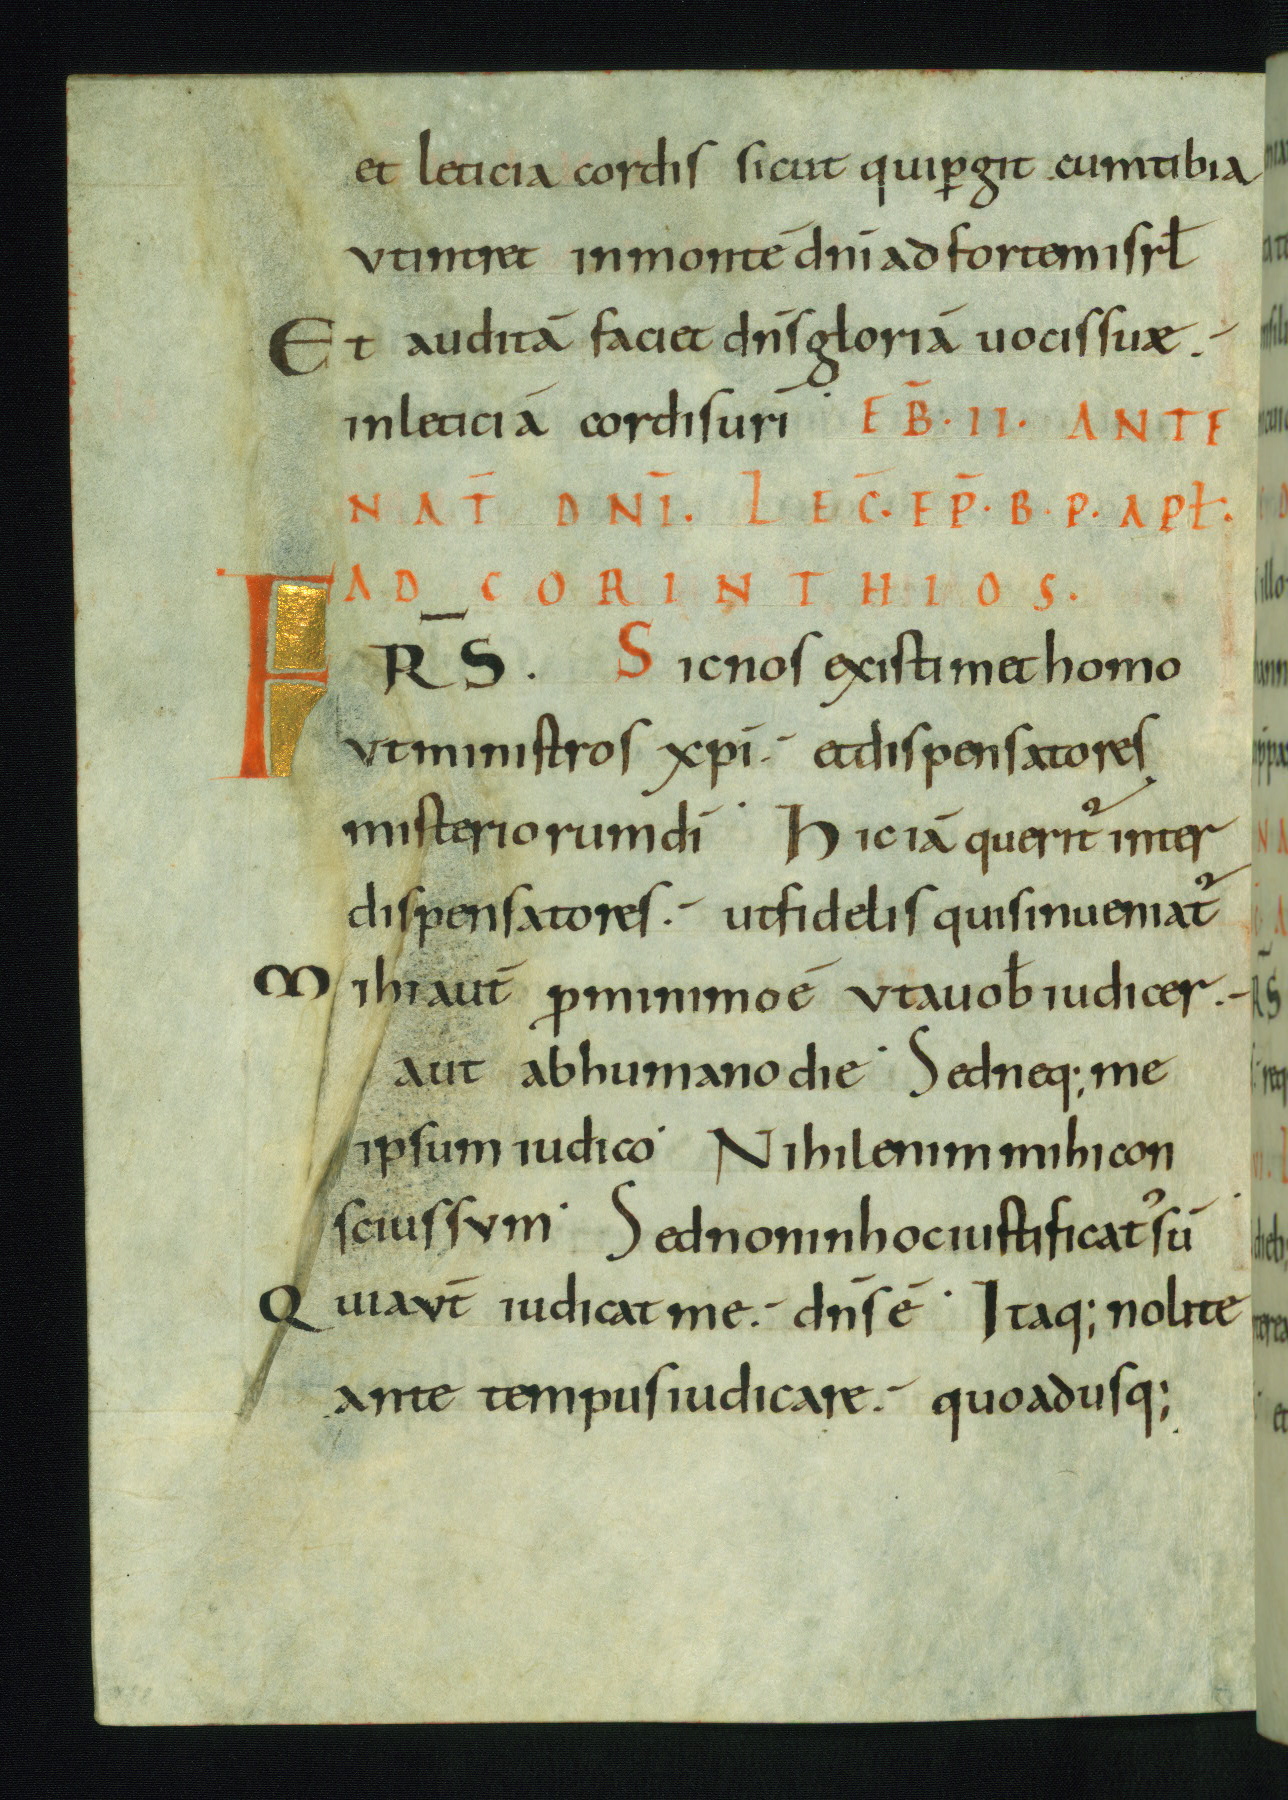 et leticia cordis sicut qui ꝑgit cum tibia
ut intret in montē dn̄i ad fortem isrl̄
Et auditā faciet dn̄s gloriā uocis suæ.
in leticiā cordis uri̅· EB̄·II· ANTE
NAT̄ DNĪ. LEC̄·EP̄·B·P·APꝉ·
AD CORINTHIOS.
FR̄S. Sic nos existimet homo
ut ministros xpī. et dispensatores
misteriorum dī· Hic iā querit᷒ inter
dispensatores. ut fidelis quis inueniat᷒
Mihi aut̄ ꝓ minimo ē ut a uob̄ iudicer.
aut ab humano die· Sed neq; me
ipsum iudico· Nihil enim mihi con
scius sum· Sed non in hoc iustificat᷒ sū·
Qui aut̄ iudicat me. dn̄s ē· Itaq; nolite
ante tempus iudicare. quo adusq;